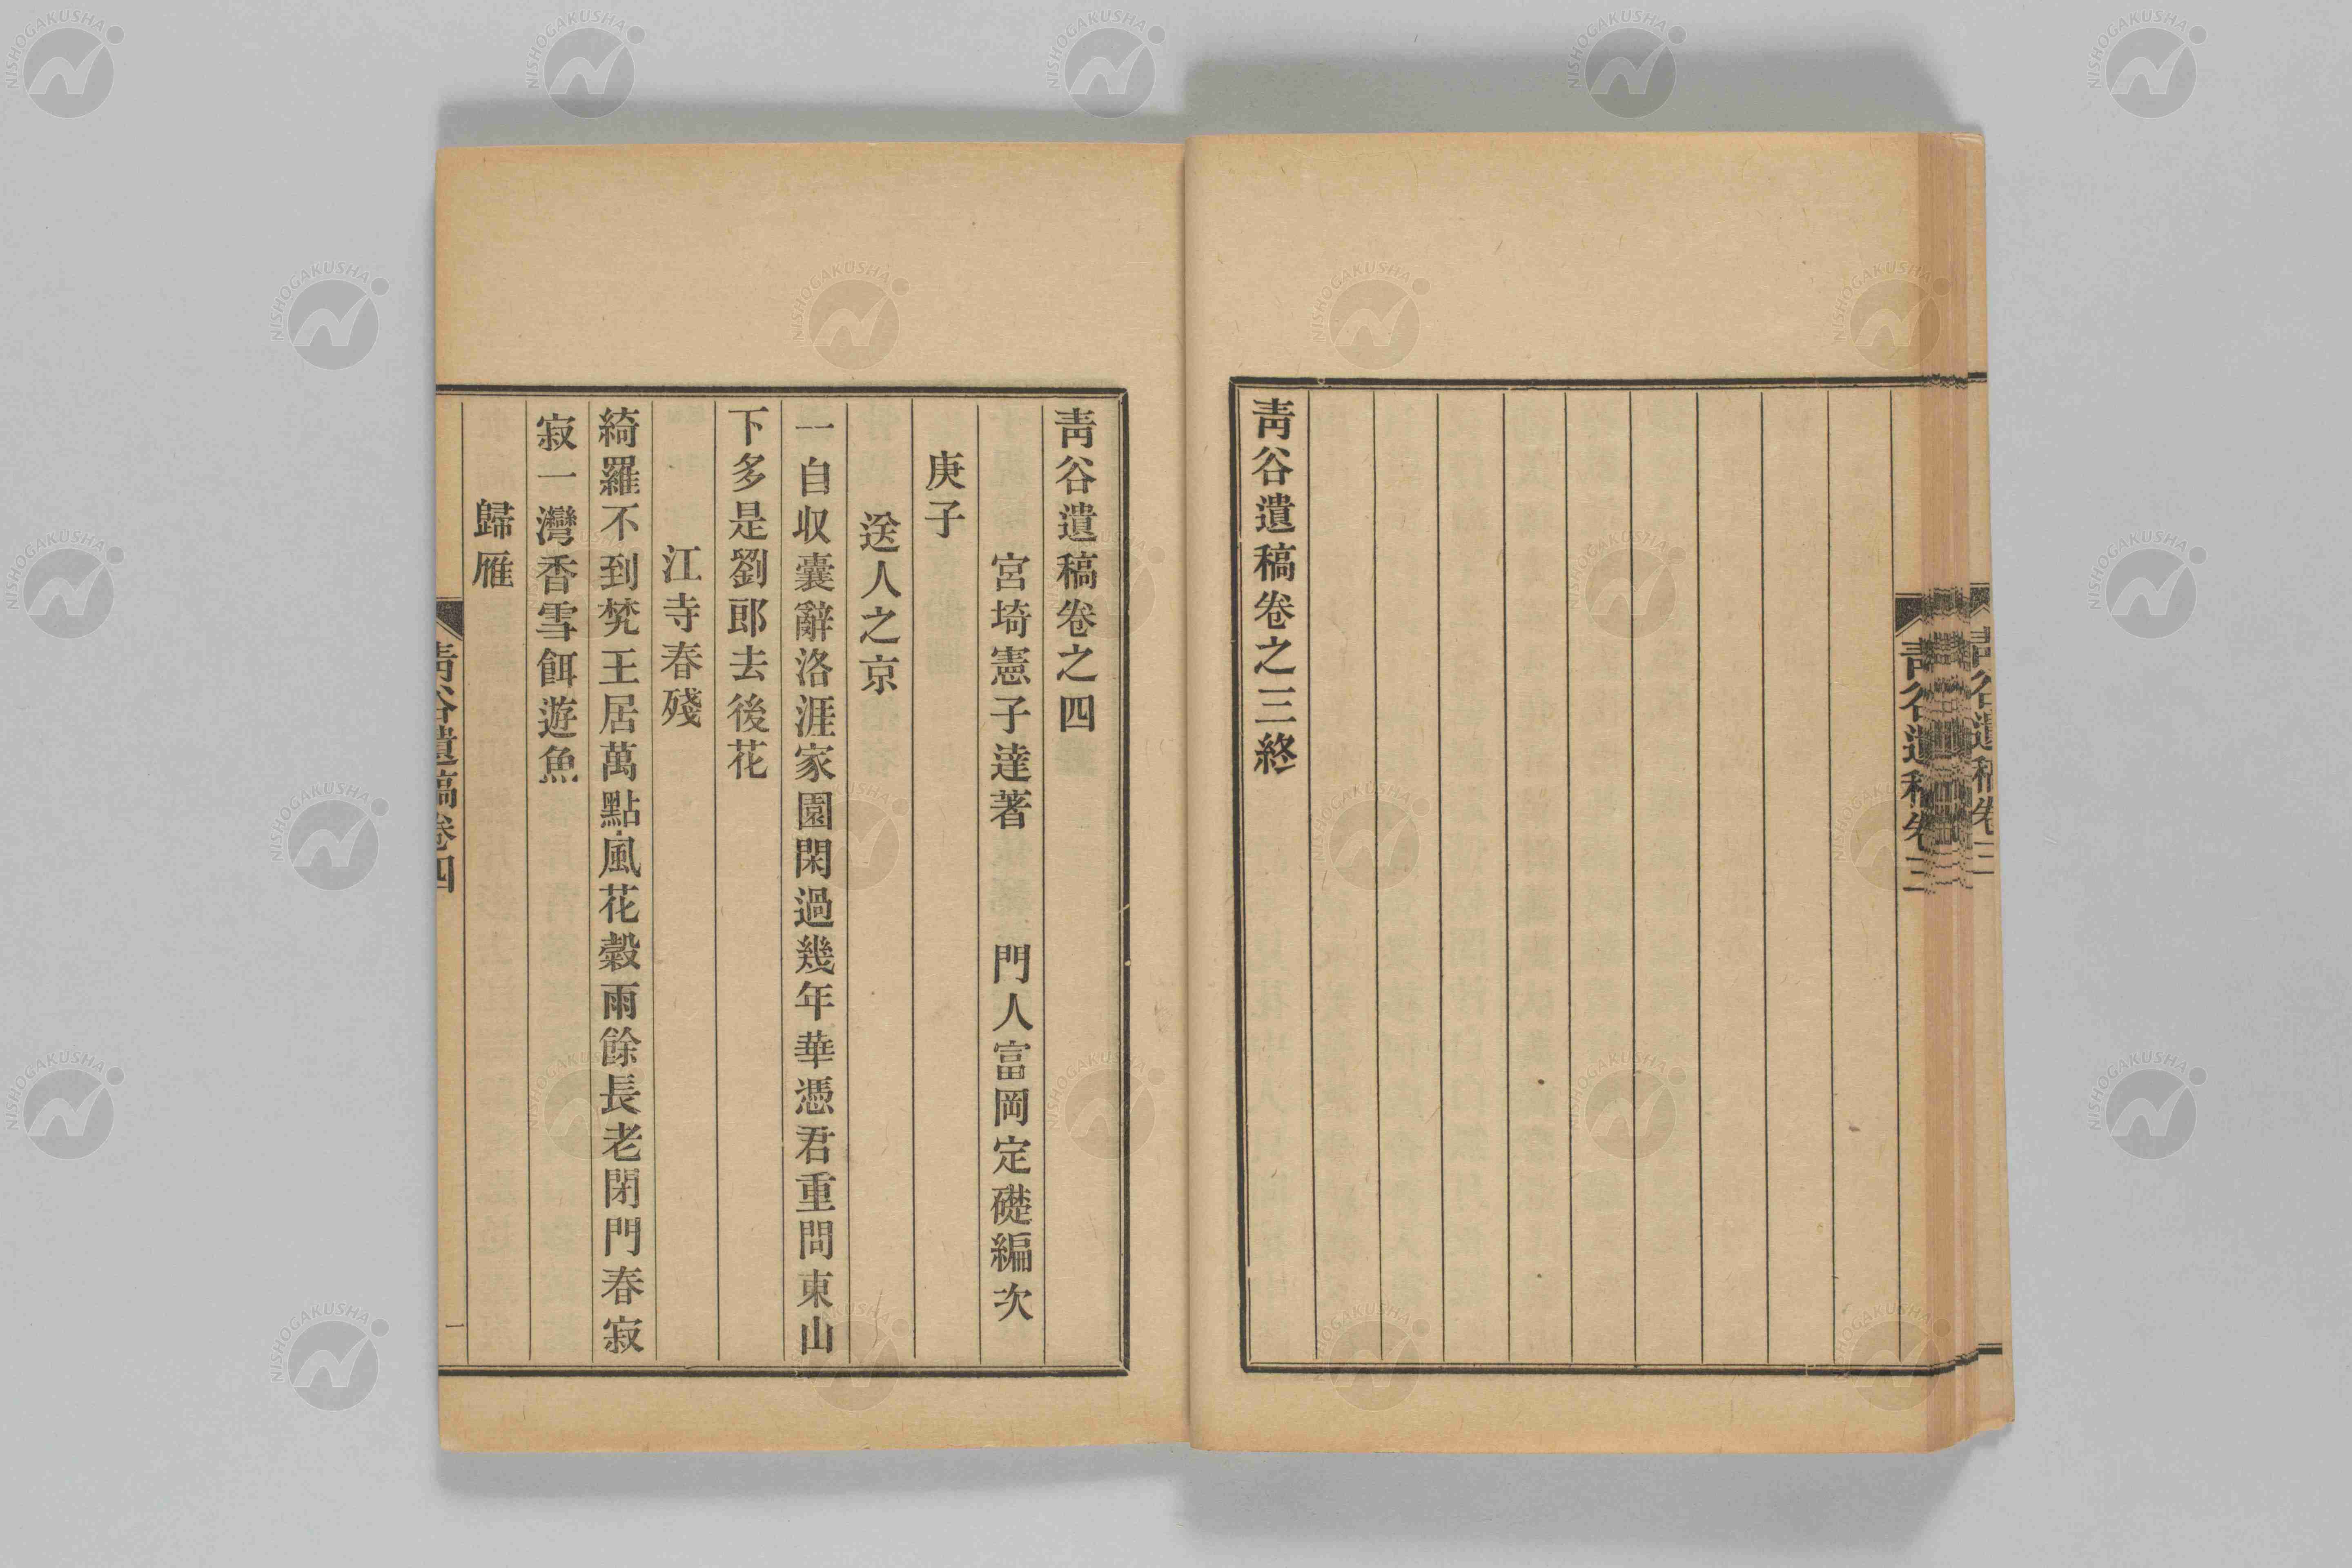 青谷遺稿卷三
青谷遺稿卷之三終
青谷遺稿卷之四
宮埼憲子達著　門人富岡定礎編次
庚子
送人之京
一自収嚢辭洛涯家園閑過幾年華憑君重問東山
下多是劉郎去後花
江寺春殘
綺羅不到梵王居萬點風花穀雨餘長老閉門春寂
寂一灣香雪餌遊魚
歸雁
青谷遺稿卷四
一
NISHOGAKUSHA